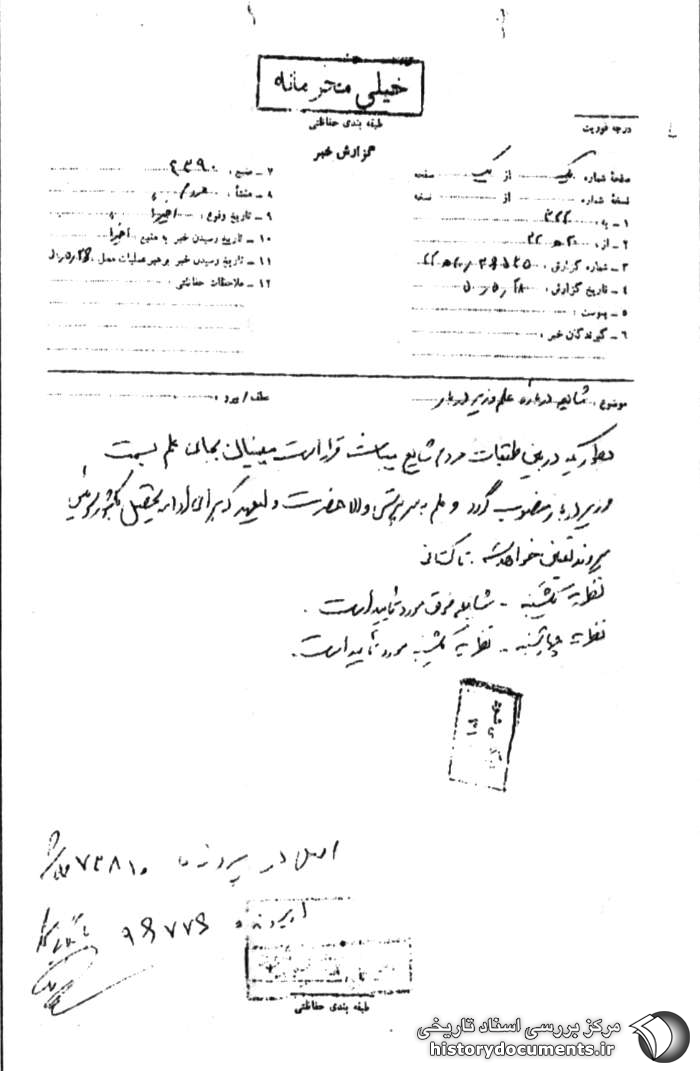 خیلی محرمانه
طبقه بندی حفاظتی
گزارش خبر
درجه فوریت
صفحۀ شماره یک از یک صفحه
نسخۀ شماره از نسخه
۱ ـ به ۳۲۲
۲ ـ از ۲۰ه۲۲
۳ ـ شماره گزارش
۴ ـ تاریخ گزارش
۵ ـ پیوست
۶ ـ گیرندگان خبر
۷ ـ منبع ۲۳۹۰
۸ ـ منشأ
۹ ـ تاریخ وقوع اخیرا
۱۰ ـ تاریخ رسیدن خبر به منبع اخیرا
۱۱ ـ تاریخ رسیدن خبر برهبر عملیات محل
۱۲ ـ ملاحظات حفاظتی
موضوع شایعه درباره علم وزیر دربار
عطف / پیرو
بطوریکه در بین طبقات مردم شایع میباشد قرار است بجای علم بسمت
وزیر دربار منصوب گردد و علم به سرپرستی والاحضرت ولیعهد که برای ادامه تحصیل بکشور سوئیس
میروند تعیین خواهد شد.
نظریه یکشنبه ـ شایعه فوق مورد تأیید است.
نظریه چهارشنبه ـ نظریه یکشنبه مورد تأیید است.
اصل در پرونده ۷۳۸۱۰
۹۹۷۷۹
طبقه بندی حفاظتی
مرکز بررسی اسناد تاریخی
historydocuments.ir